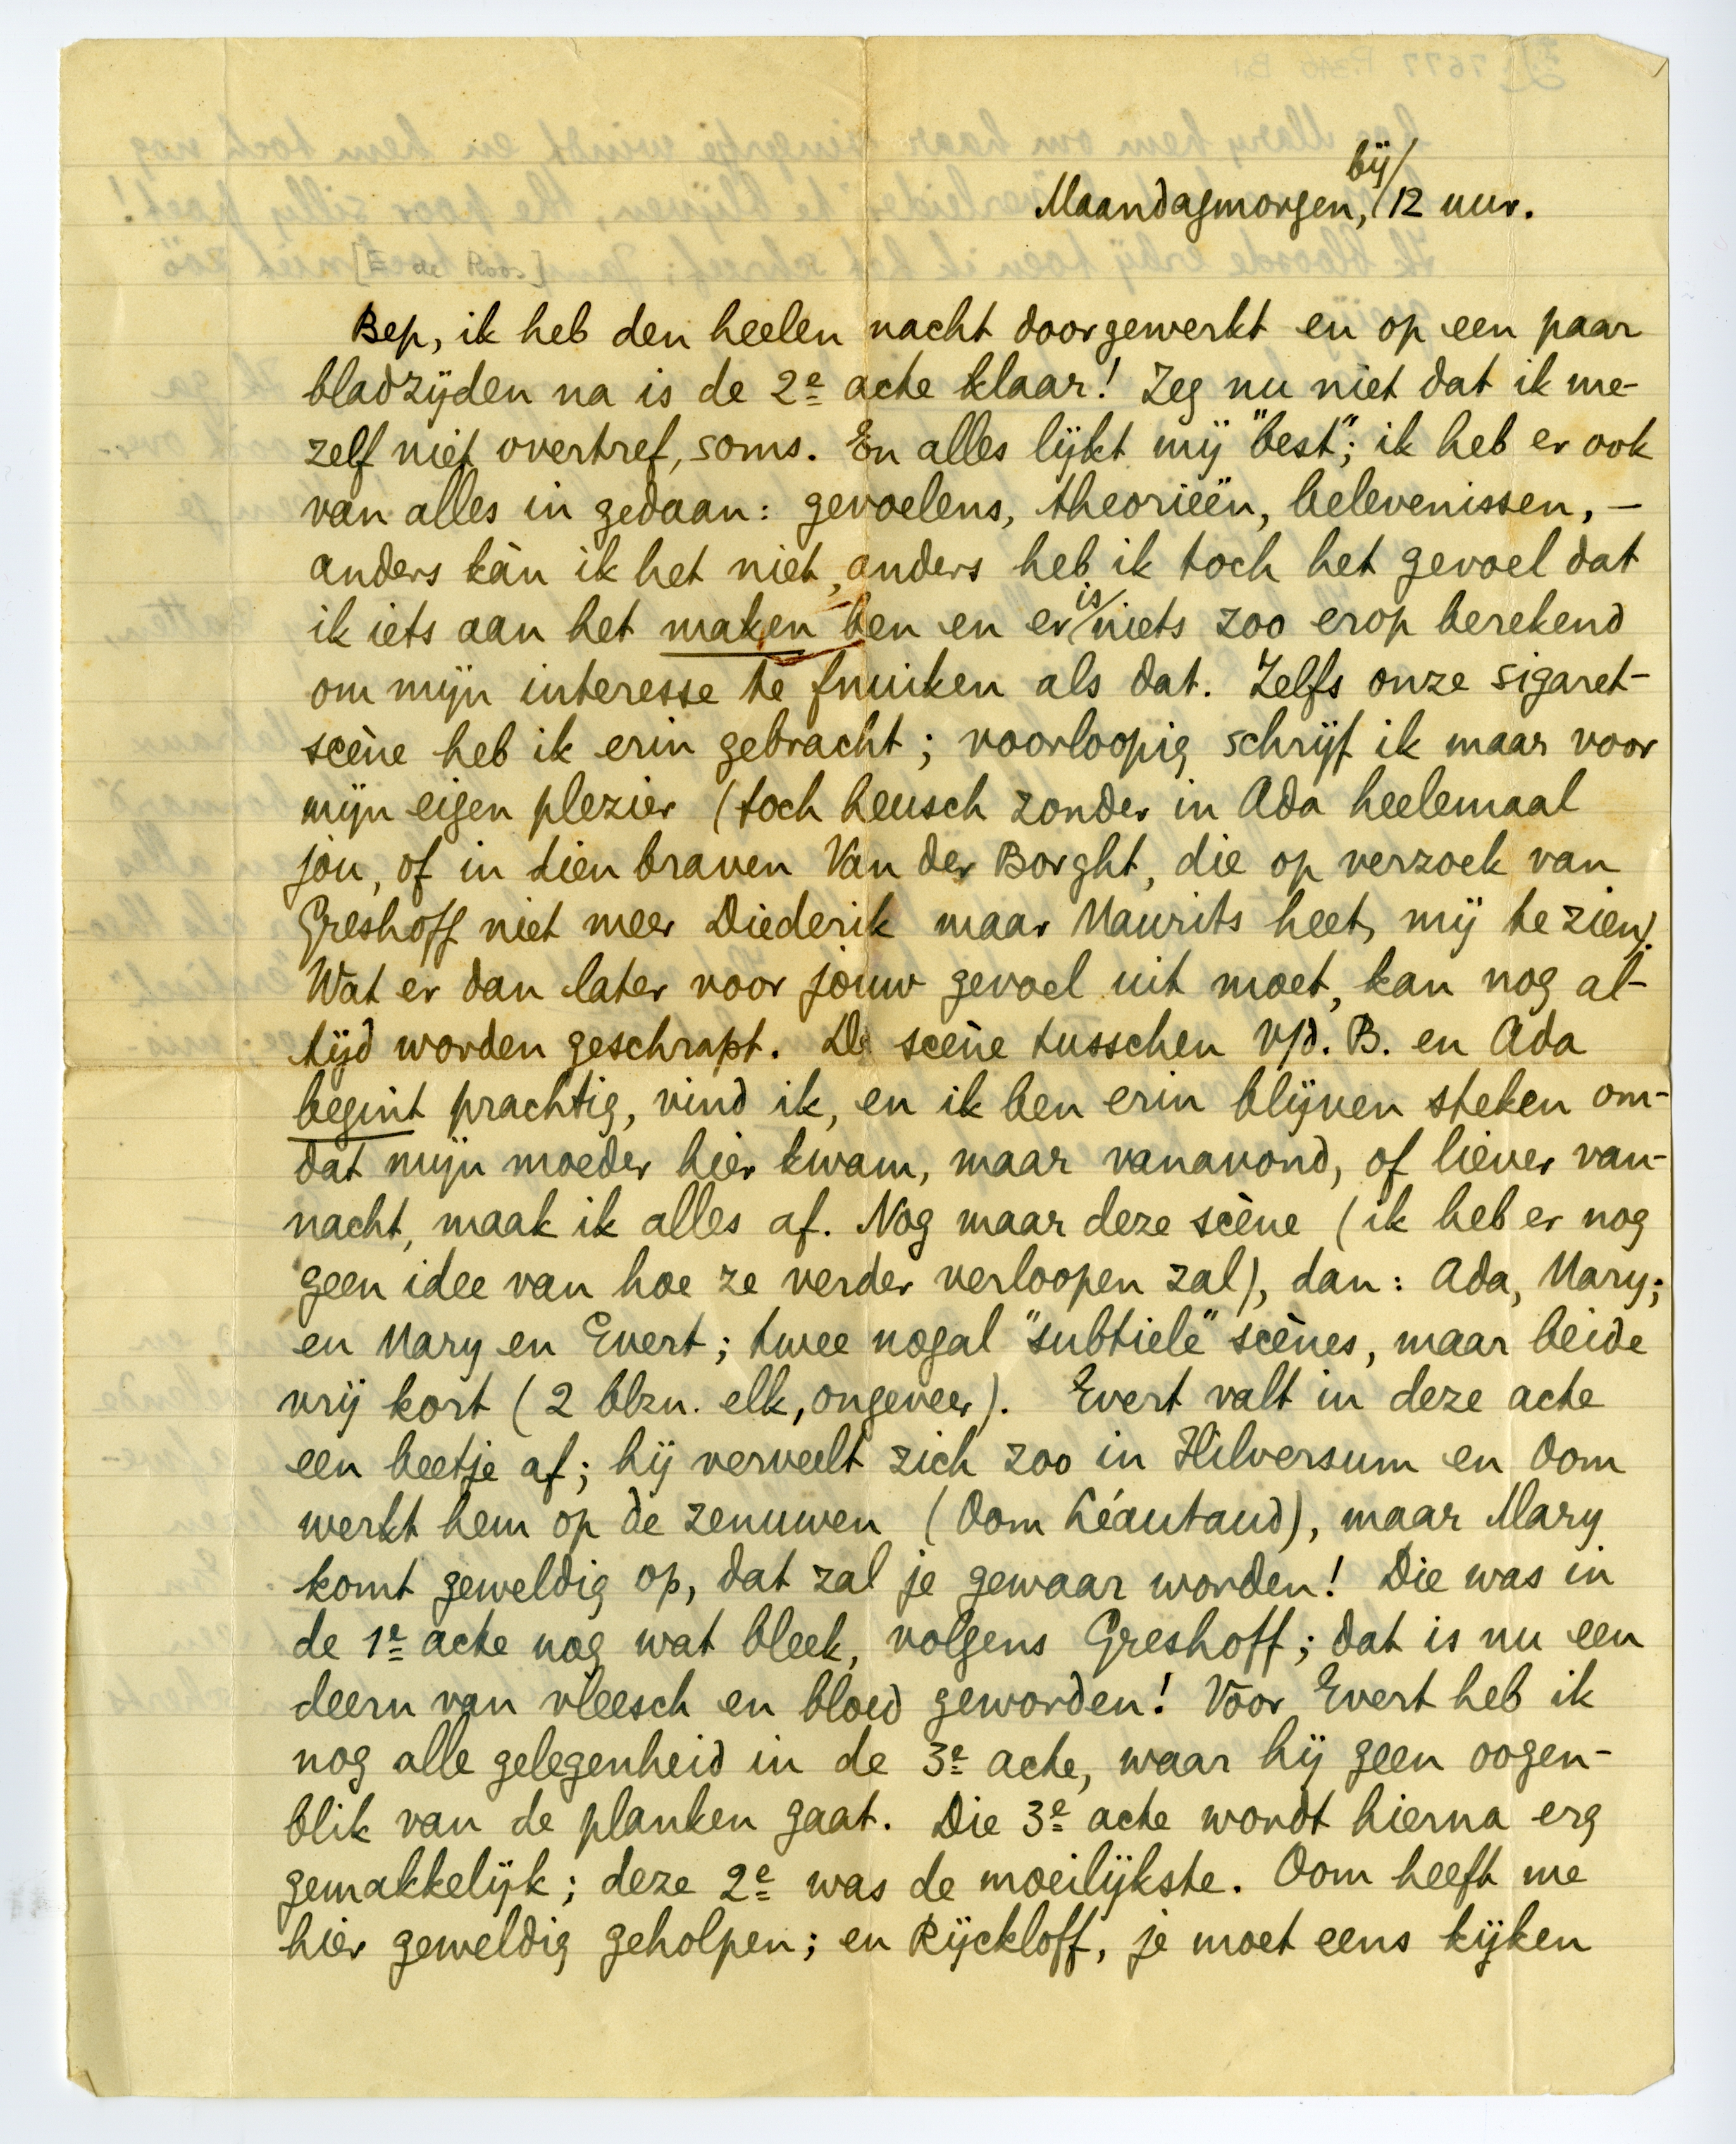 bij/
Maandagmorgen, /12 uur.
[E. de Roos]
Bep, ik heb den heelen nacht doorgewerkt en op een paar
bladzijden na is de 2e acte klaar! Zeg nu niet dat ik me-
zelf niet overtref, soms. En alles lijkt mij "best"; ik heb er ook
van alles in gedaan: gevoelens, theorieën, belevenissen, —
anders kàn ik het niet, anders heb ik toch het gevoel dat
ik iets aan het maken ben en er /is niets zoo erop berekend
om mijn interesse te fnuiken als dat. Zelfs onze sigaret-
scène heb ik erin gebracht; voorloopig schrijf ik maar voor
mijn eigen plezier (toch heusch zonder in Ada heelemaal
jou, of in dien braven Van der Borght, die op verzoek van
Greshoff niet meer Diederik maar Maurits heet, mij te zien).
Wat er dan later voor jouw gevoel uit moet, kan nog al-
tijd worden geschrapt. De scène tusschen v/d. B. en Ada
begint prachtig, vind ik, en ik ben erin blijven steken om-
dat mijn moeder hier kwam, maar vanavond, of liever van-
nacht, maak ik alles af. Nog maar deze scène (ik heb er nog
geen idee van hoe ze verder verloopen zal), dan: Ada, Mary;
en Mary en Evert; twee nogal "subtiele" scènes, maar beide
vrij kort (2 blzn. elk, ongeveer). Evert valt in deze acte
een beetje af; hij verveelt zich zoo in Hilversum en Oom
werkt hem op de zenuwen (Oom Léautaud), maar Mary
komt geweldig op, dat zal je gewaar worden! Die was in
de 1e acte nog wat bleek, volgens Greshoff; dat is nu een
deern van vleesch en bloed geworden! Voor Evert heb ik
nog alle gelegenheid in de 3e acte, waar hij geen oogen-
blik van de planken gaat. Die 3e acte wordt hierna erg
gemakkelijk; deze 2e was de moeilijkste. Oom heeft me
hier geweldig geholpen; en Rijckloff, je moet eens kijken